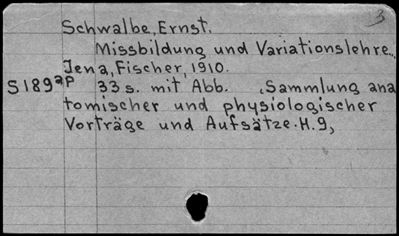 3
Schwalbe, Ernst.
Missbildung und Variationslehre..
Jena, Fischer, 1910.
S189ap 33 s. mit Abb. (Sammlung ana
tomischer und physiologischer
Vorträge und Aufsätze. H. 9)